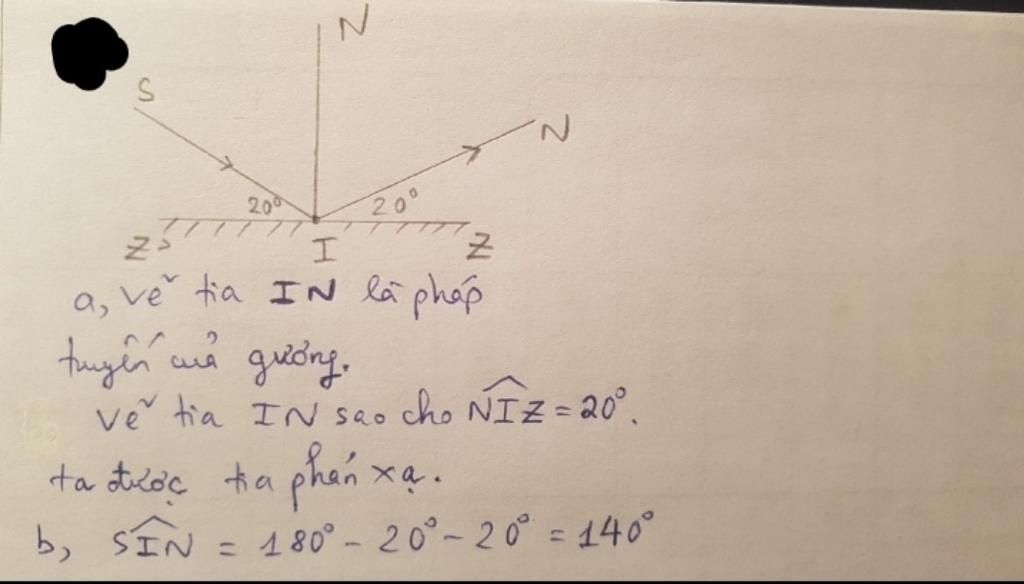 N
S
N
20° 20°
Z> I Z
a, vẽ tia IN là pháp
tuyến của gương.
vẽ tia IN sao cho NIZ = 20°.
ta được tia phản xạ.
b, SIN = 180° - 20° - 20° = 140°